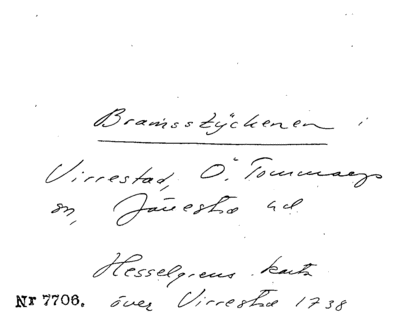 Bramsstÿckenen i
Virrestad, Ö. Tommarps
sn, Järestad hd
Hesselgrens karta
Nr 7706. över Virrestad 1738